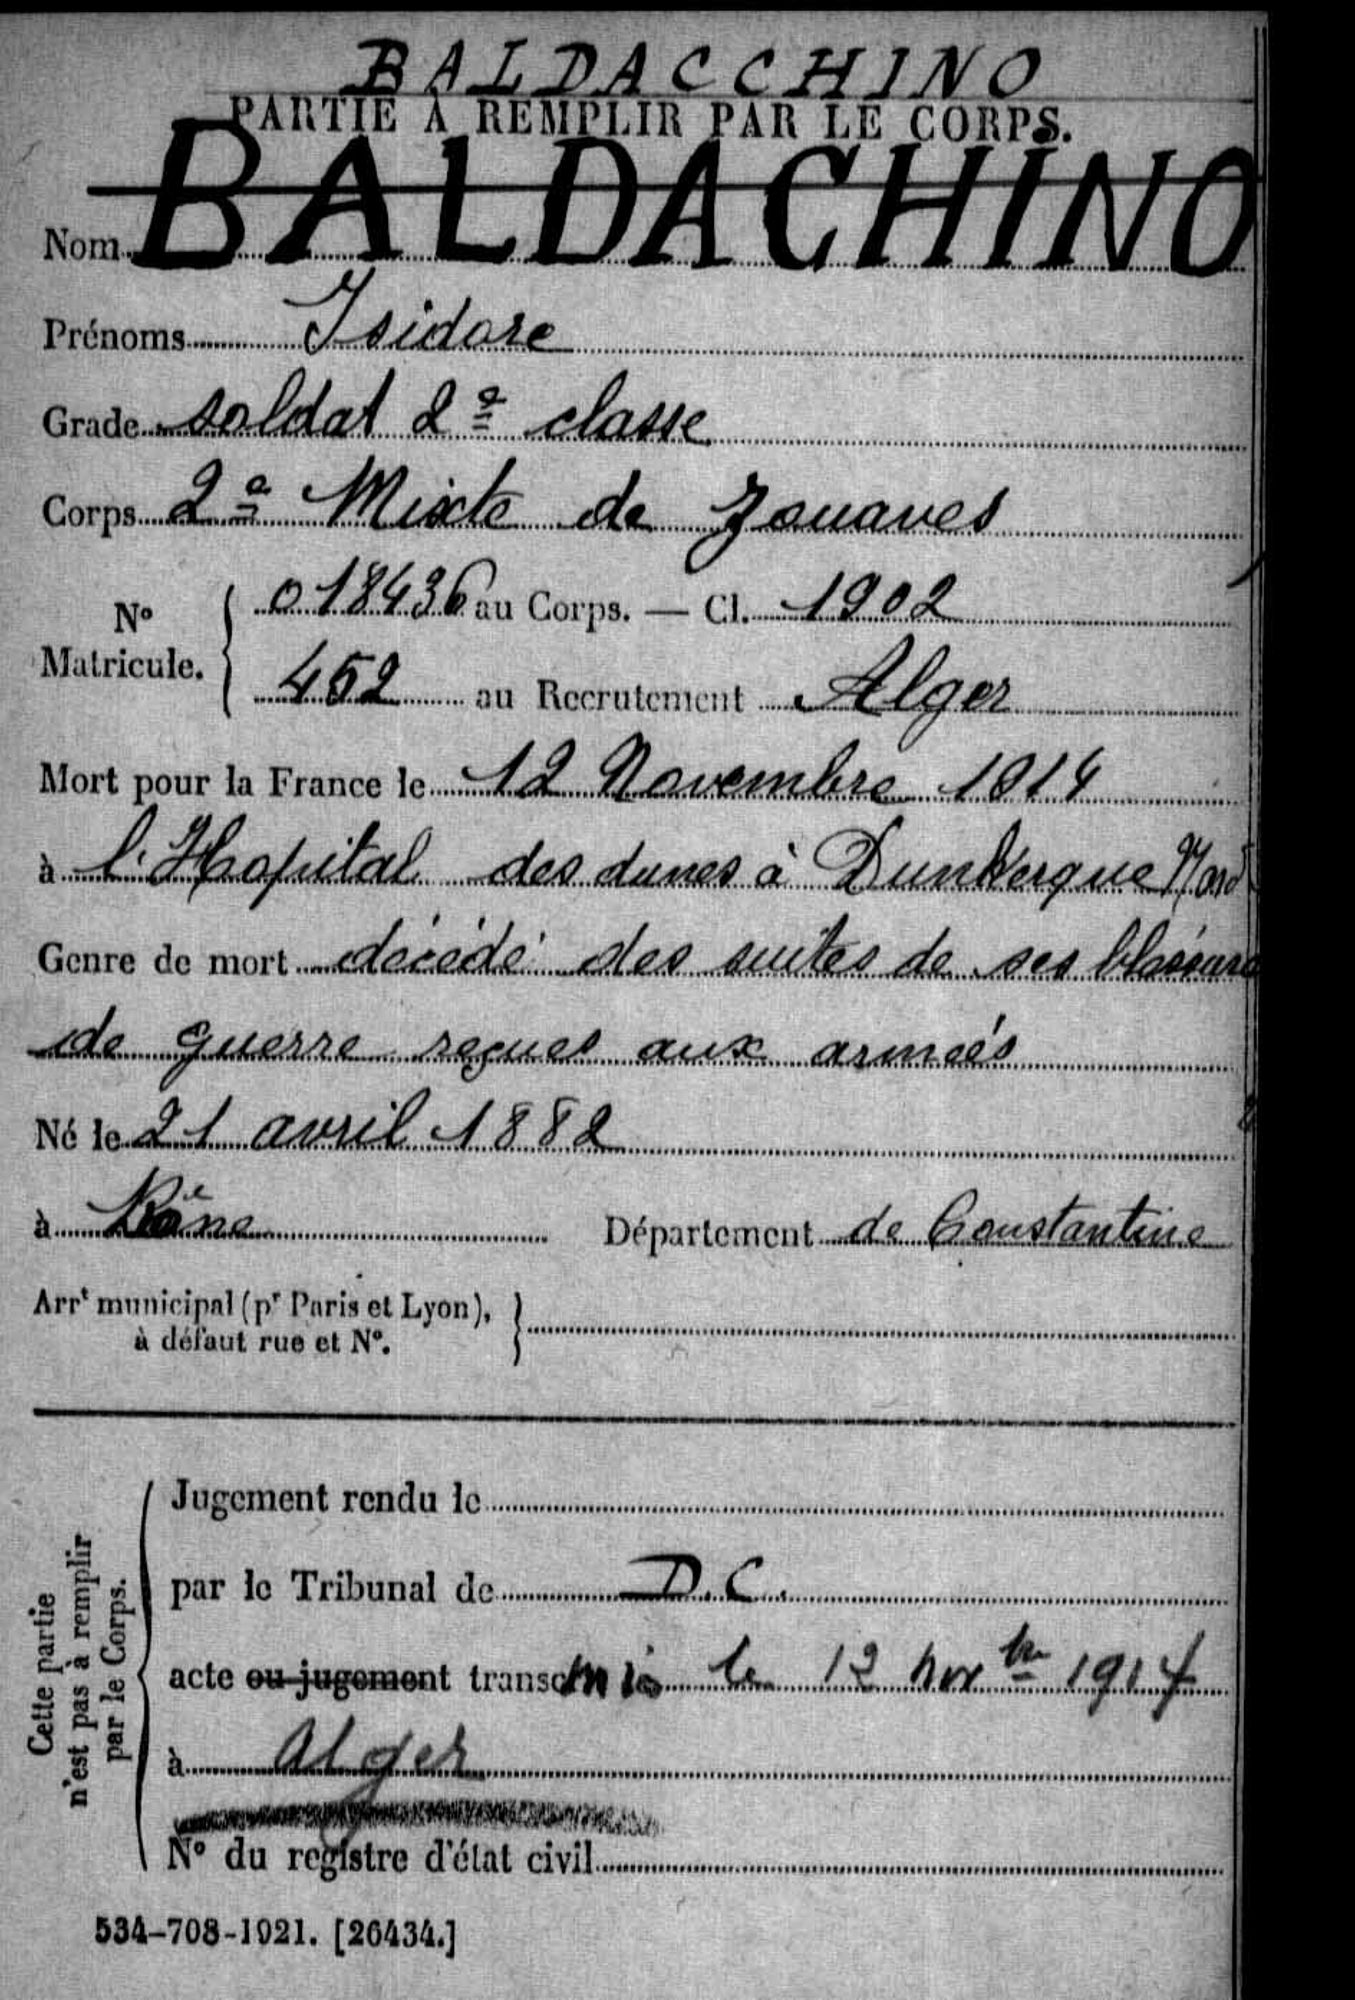 BALDACCHINO
PARTIE À REMPLIR PAR LE CORPS.
Nom BALDACHINO
Prénoms Isidore
Grade soldat 2e classe
Corps 2e Mixte de Zouaves
No Matricule. { 018436 au Corps. — Cl. 1902
452 au Recrutement Alger
Mort pour la France le 12 Novembre 1914
à l'Hopital des dunes à Dunkerque Nord
Genre de mort décédé des suites de ses blessure
de guerre reçues aux armées
Né le 21 avril 1882
à Bône Département de Constantine
Arrt municipal (pr Paris et Lyon), }
à défaut rue et No.
Cette partie
n'est pas à remplir
par le Corps.
Jugement rendu le
par le Tribunal de D.C.
acte ou jugement transcmis le 12 novbre 1914
à Alger
No du registre d'état civil
534-708-1921. [26434.]